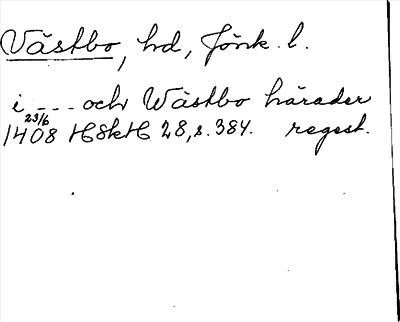 Västbo, hd, Jönk. l.
i --- och Wästbo härader
1408 23/6 HSkH 28, s. 384. regest.